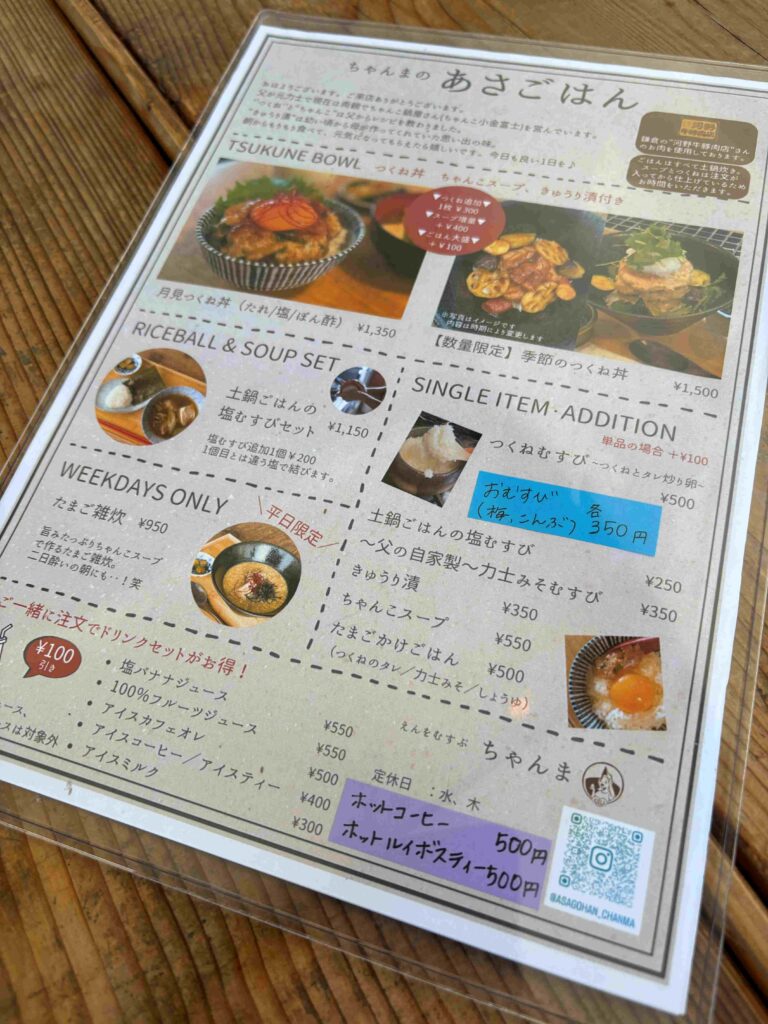 ちゃんまの あさごはん
おはようございます。ご来店ありがとうございます。
父が元力士で現在は両親でちゃんこ鍋屋さん(ちゃんこ小金富士)を営んでいます。
"つくね"と"ちゃんこ"は父からレシピを教わりました。
"きゅうり漬"は幼い頃から母が作ってくれていた思い出の味。
朝からもりもり食べて、元気になってもらえたら嬉しいです。今日も良い1日を♪
鎌倉の"河野牛豚肉店"さん
のお肉を使用しております。
ごはんはすべて土鍋炊き。
スープとつくねは注文が
入ってから仕上げているため
お時間をいただきます。
TSUKUNE BOWL つくね丼 ちゃんこスープ、きゅうり漬付き
▼つくね追加▼
1枚 ¥300
▼スープ増量▼
+¥400
▼ごはん大盛▼
+¥100
月見つくね丼(たれ/塩/ぽん酢) ¥1,350
※写真はイメージです
内容は時期により変更します
【数量限定】季節のつくね丼
¥1,500
RICEBALL & SOUP SET
土鍋ごはんの
塩むすびセット ¥1,150
塩むすび追加1個¥200
1個目とは違う塩で結びます。
WEEKDAYS ONLY
たまご雑炊 ¥950
\平日限定/
旨みたっぷりちゃんこスープ
で作るたまご雑炊。
二日酔いの朝にも‥!笑
SINGLE ITEM・ADDITION
単品の場合 +¥100
つくねむすび~つくねとタレ炒り卵~
¥500
おむすび 各
(梅、こんぶ) 350円
土鍋ごはんの塩むすび ¥250
~父の自家製~力士みそむすび ¥350
きゅうり漬 ¥350
ちゃんこスープ ¥550
たまごかけごはん ¥500
(つくねのタレ/力士みそ/しょうゆ)
ご一緒に注文でドリンクセットがお得!
¥100
引き
・塩バナナジュース ¥550
・100%フルーツジュース ¥550
・アイスカフェオレ ¥500
・アイスコーヒー/アイスティー ¥400
・アイスミルク ¥300
ース、
スは対象外
えんをむすぶ ちゃんま
定休日 :水、木
ホットコーヒー 500円
ホットルイボスティー 500円
@ASAGOHAN_CHANMA